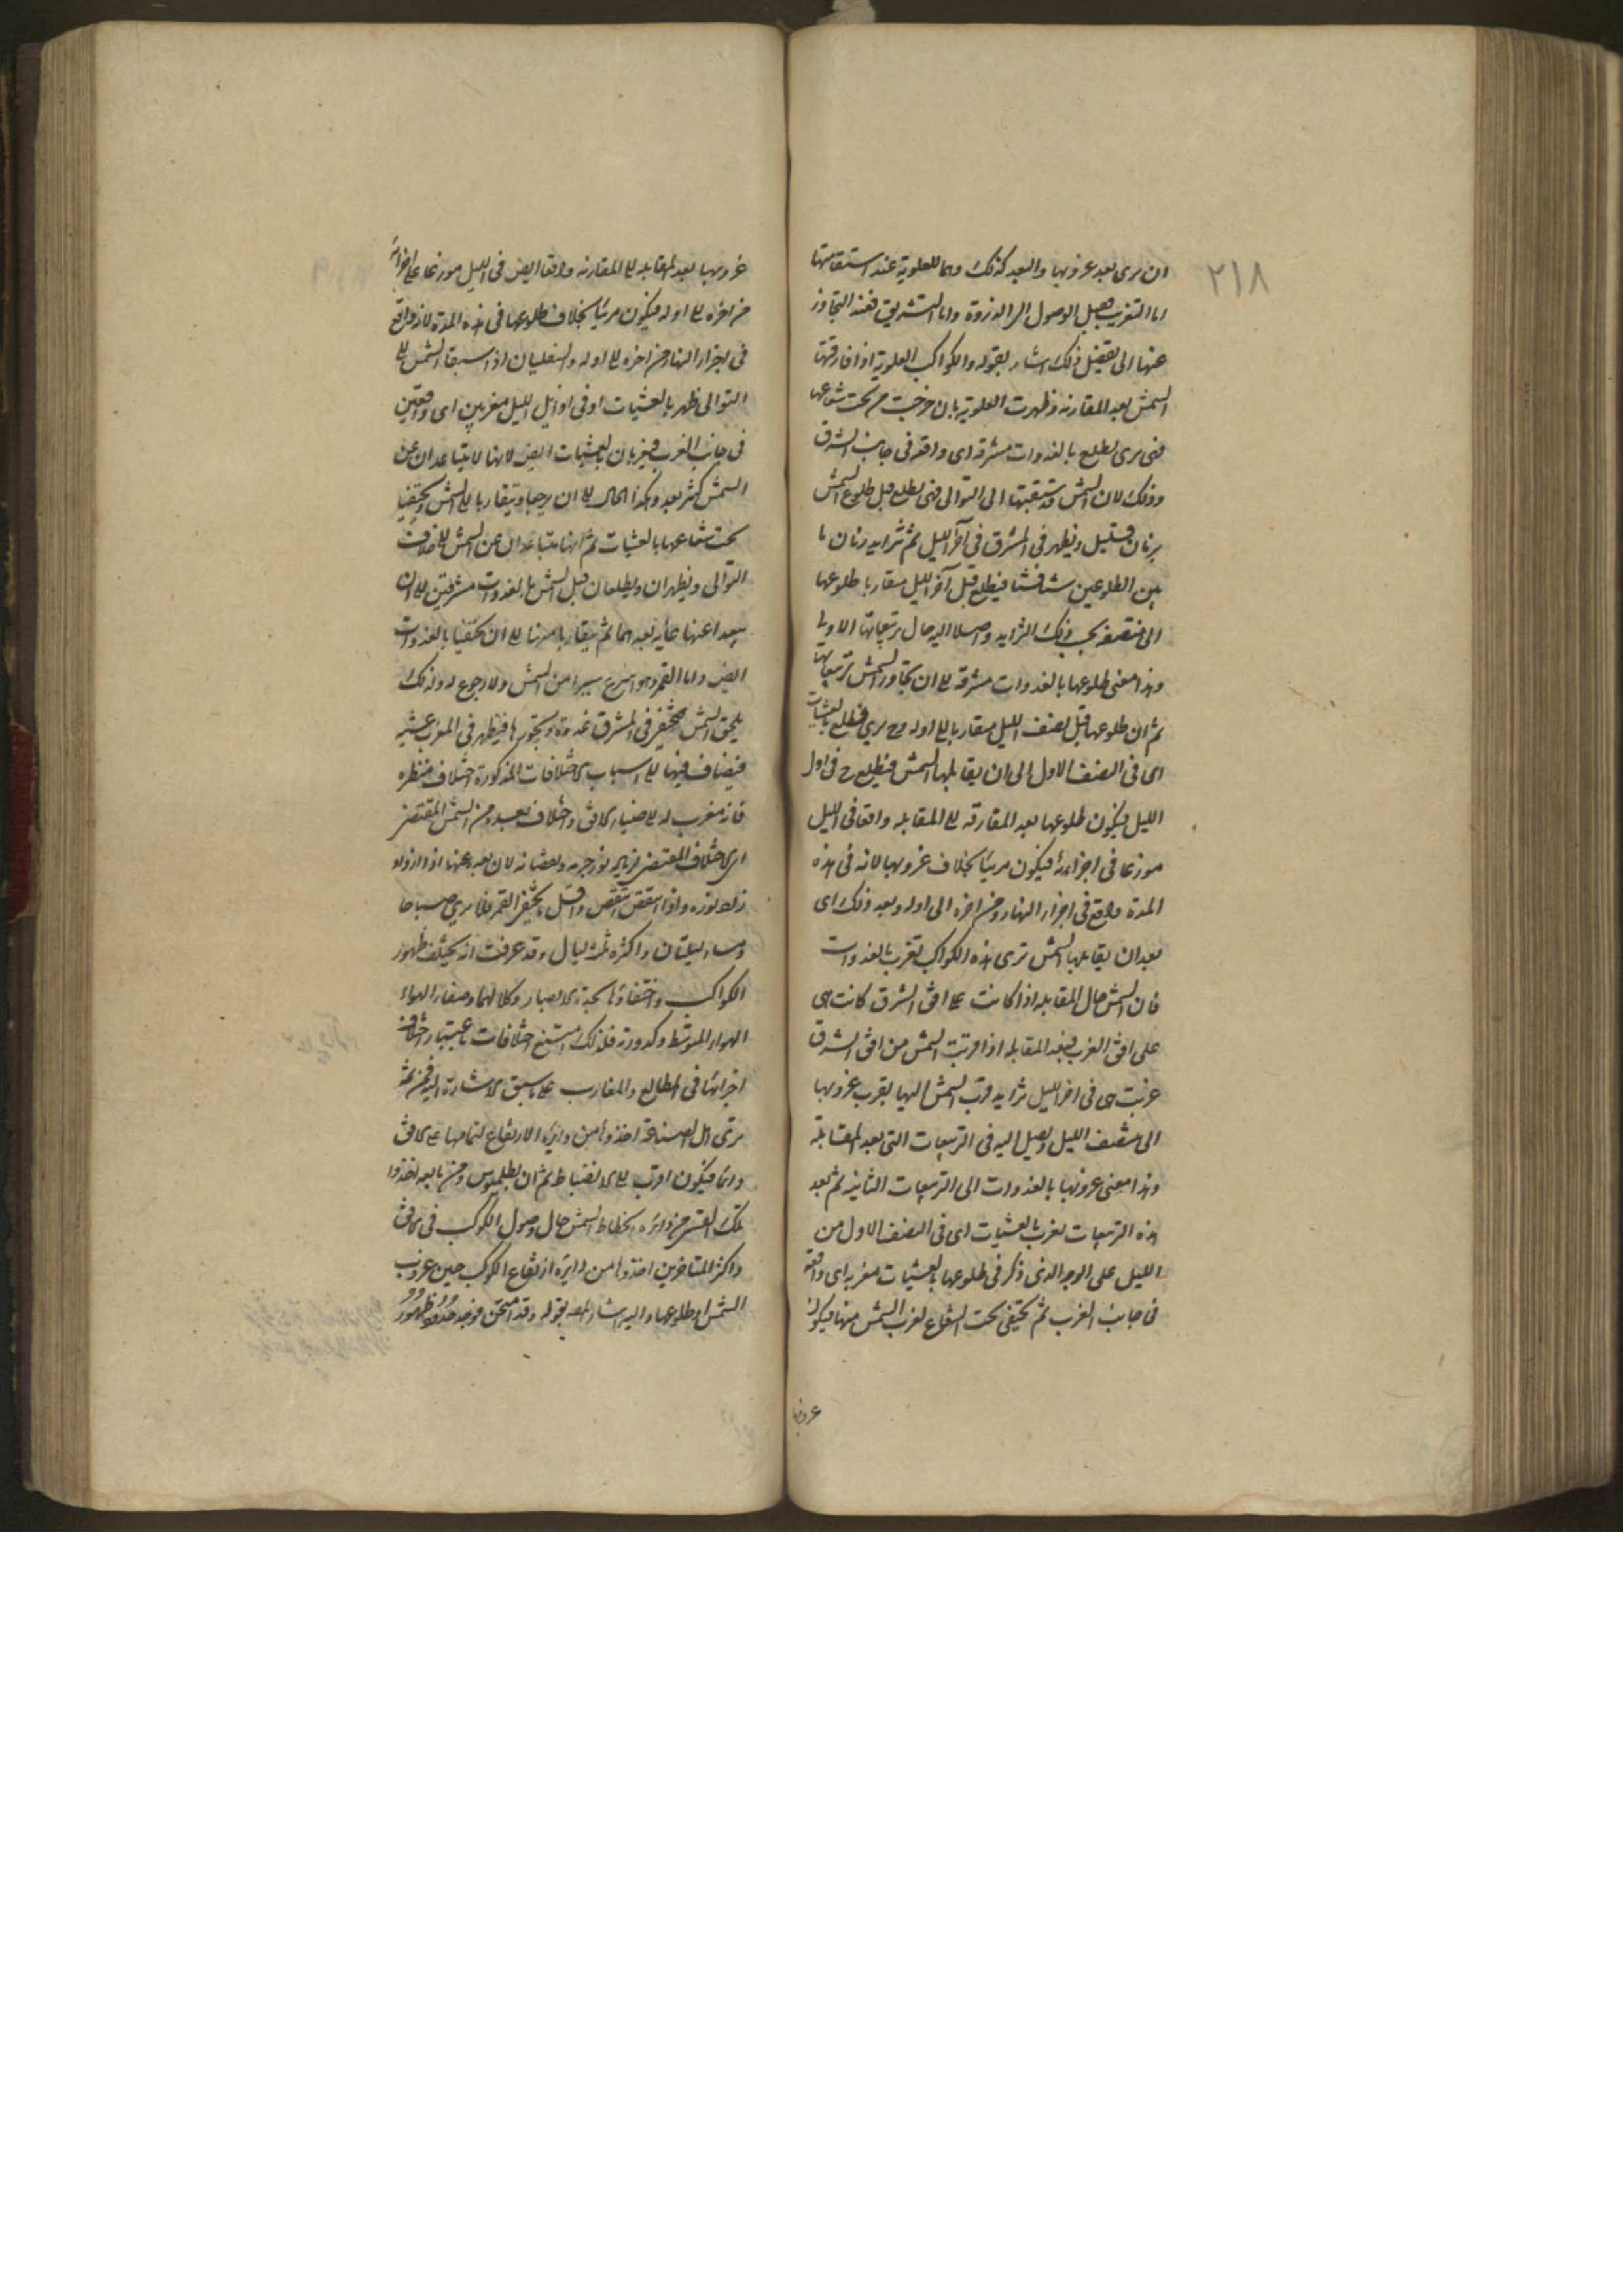 ٢١٨
ان يرى بعد غروبها والبعد كذلك وهما للعلوية عند استقامتها
اما التغريب قبل الوصول الى الذروة واما التشريق فعند التجاوز
عنها الى تفصيل ذلك اشار بقوله والكواكب العلوية اذا فارقتها
الشمس بعد المقارنة وظهرت العلوية بان خرجت من تحت شعاعها
فهى يرى تطلع بالغدوات مشرقة اى واقعة فى جانب الشرق
وذلك لان الشمس قد سبقتها الى التوالى فهى تطلع قبل طلوع الشمس
بزمان قليل ويظهر فى المشرق فى آخر الليل ثم تزايد زمان ما
بين الطلوعين شيئا فشيئا فيطلع قبل آخر الليل متقاربا طلوعها
الى منتصفه بحسب ذلك التزايد واصلا اليه حال تربيعاتها الاولى
وهذا معنى طلوعها بالغدوات مشرقة الى ان تجاوز الشمس تربيعاتها
ثم ان طلوعها قبل نصف الليل متقاربا الى اوله وح يرى تطلع بالعشيات
اى فى النصف الاول الى ان يقابلها الشمس فيطلع ح فى اول
الليل فيكون طلوعها بعد المفارقة الى المقابلة واقعا فى الليل
موزعا فى اجزائه فيكون مرئيا بخلاف غروبها لانه فى هذه
المدة واقع فى اجزاء النهار ومن اخره الى اوله وبعد ذلك اى
بعد ان يقابلها الشمس ترى هذه الكواكب تغرب بالغدوات
فان الشمس حال المقابلة اذا كانت على افق الشرق كانت هى
على افق الغرب فبعد المقابلة اذا قربت الشمس من افق الشرق
غربت هى فى اخر الليل تزايد قرب الشمس اليها يقرب غروبها
الى منتصف الليل ويصل اليه فى التربيعات التى بعد المقابلة
وهذا معنى غروبها بالغدوات الى التربيعات الثانية ثم بعد
هذه التربيعات تغرب بالعشيات اى فى النصف الاول من
الليل على الوجه الذى ذكر فى طلوعها بالعشيات مغربة اى واقعة
فى جانب الغرب ثم تختفى تحت الشعاع لقرب الشمس منها فيكون
غروبها
غروبها بعد المقابلة الى المقارنة واقعا ايض فى الليل موزعا على اجزائه
من اخره الى اوله فيكون مرئيا بخلاف طلوعها فى هذه المدة لانه واقع
فى اجزاء النهار من اخره الى اوله والسفليان اذا سبقا الشمس الى
التوالى ظهرا بالعشيات او فى اوائل الليل مغربين اى واقعين
فى جانب الغرب فيغربان بالعشيات ايض لانهما لا يتباعدان عن
الشمس كثير بعد وهكذا الحال الى ان يرجعا ويتقاربا الى الشمس ويختفيا
تحت شعاعها بالعشيات ثم انهما يتباعدان عن الشمس الى خلاف
التوالى ويظهران ويطلعان قبل الشمس بالغدوات مشرقين الى ان
يبعدا عنها غاية بعدهما ثم يتقاربا منها الى ان يختفيا بالغدوات
ايض واما القمر وهو اسرع سيرا من الشمس ولا رجوع له ولذلك
يلحق الشمس فيختفى فى المشرق غدوة ويتجاوزها فيظهر فى المغرب عشية
فيضاف فيها الى اسباب الاختلافات المذكورة اختلاف منظره
فانه مغرب له الى الافق واختلاف بعده من الشمس المقتضى
اى الاختلاف المقتضى لزيادة نور جرمه ونقصانه لان بعده عنها اذا ازداد
زاد نوره واذا انتقص انتقص واقل ما يختفى القمر فلا يرى صباحا
ومساء ليلتان واكثره ثلث ليال وقد عرفت انه يختلف ظهور
الكواكب واختفاؤها بحدة الابصار وكلالها وصفاء الهواء
الهواء المتوسط وكدورته فلذلك اختلافات باعتبار اختلاف
اجزائها فى المطالع والمغارب على ما سبق الاشارة اليه فمن ثمة
ترى اهل الصناعة اخذوها من دائرة الارتفاع لتمامها على الافق
دائما فيكون اقرب الى الانضباط ثم ان بطلميوس ومن تابعه اخذوا
تلك القسى من دائرة انحطاط الشمس حال وصول الكوكب فى الافق
واكثر المتاخرين اخذوها من دائرة ارتفاع الكوكب حين غروب
الشمس او طلوعها واليه اشار المصه بقوله وقد امتحن فوجد حدود ظهور